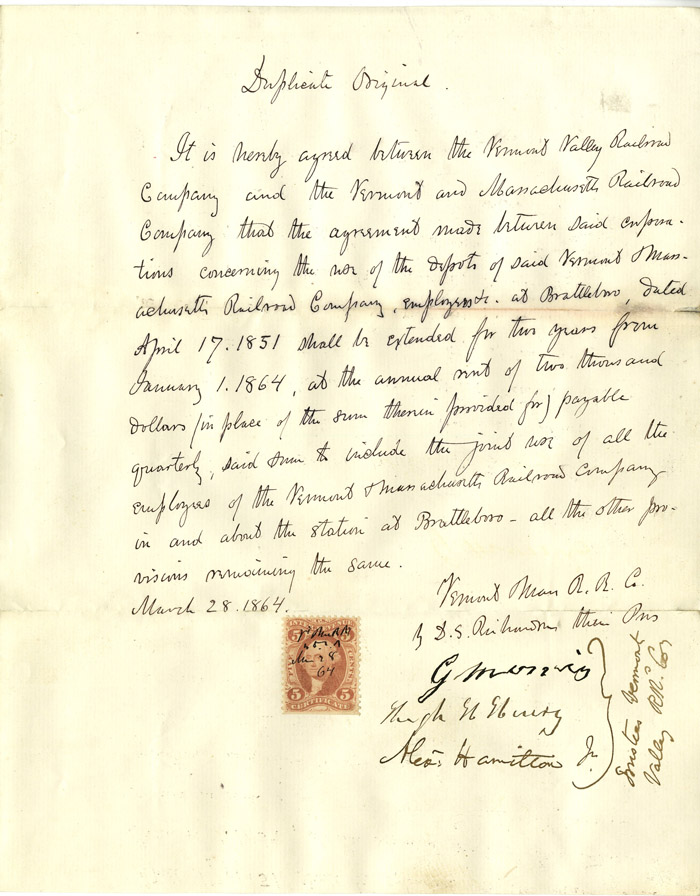 Duplicate Original.
It is hereby agreed between the Vermont Valley Railroad
Company and the Vermont and Massachusetts Railroad
Company that the agreement made between said corpora-
tions concerning the use of the depots of said Vermont & Mass-
achusetts Railroad Company, employees &c. at Brattleboro, dated
April 17. 1851 shall be extended for two years from
January 1. 1864, at the annual rent of two thousand
dollars (in place of the sum therein provided for) payable
quarterly, said sum to include the joint use of all the
employees of the Vermont & Massachusetts Railroad Company
in and about the station at Brattleboro - all the other pro-
visions remaining the same.
March 28. 1864.
Vermont & Mass R. R. Co.
by D. S. Richardson their Pres
G
Hugh H
Alexr Hamilton Jr.
Trustees Vermont
Valley R.R. Co
5 5
28
64
5 CENTS
5 5
CERTIFICATE